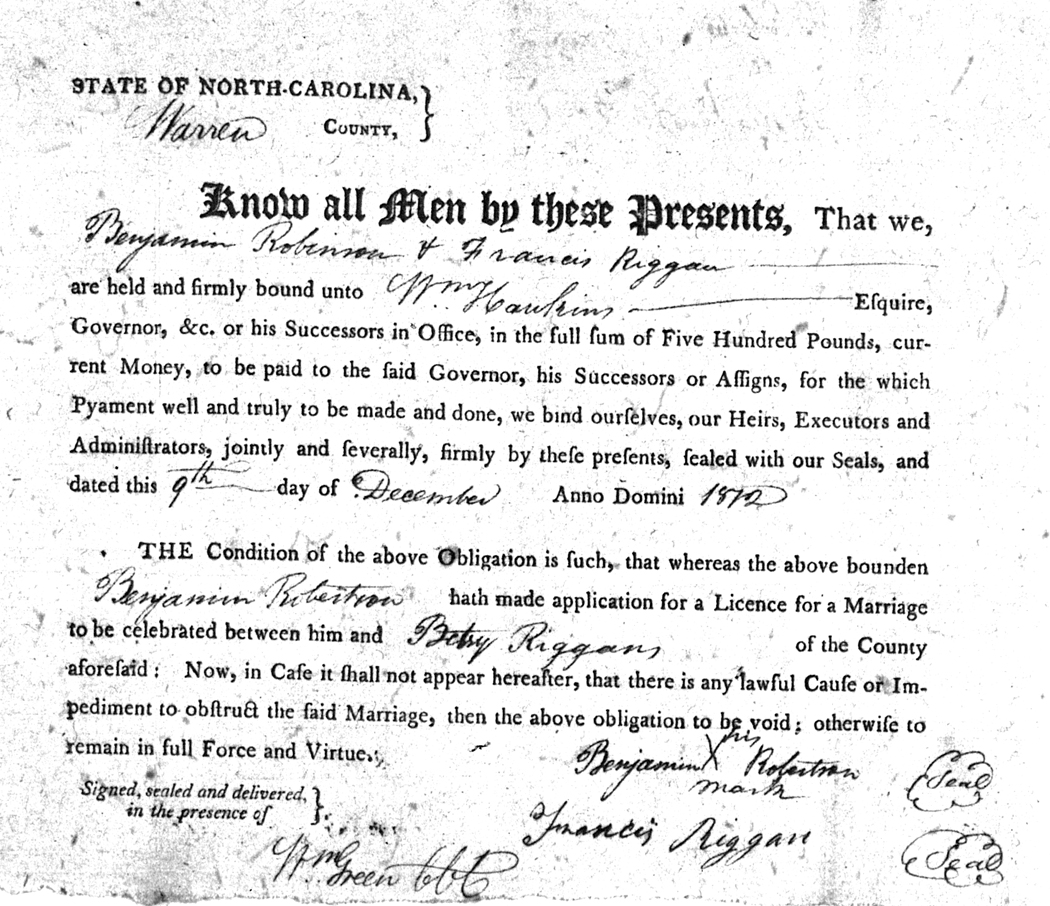 STATE OF NORTH-CAROLINA,
Warren COUNTY,
Know all Men by these Presents, That we,
Benjamin Robinson & Francis Riggan
are held and firmly bound unto Wm Hawkins Eſquire,
Governor, &c. or his Succeſſors in Office, in the full ſum of Five Hundred Pounds, cur-
rent Money, to be paid to the ſaid Governor, his Succeſſors or Aſſigns, for the which
Pyament well and truly to be made and done, we bind ourſelves, our Heirs, Executors and
Adminiſtrators, jointly and ſeverally, firmly by theſe preſents, ſealed with our Seals, and
dated this 9th day of December Anno Domini 1812
THE Condition of the above Obligation is ſuch, that whereas the above bounden
Benjamin Robertson hath made application for a Licence for a Marriage
to be celebrated between him and Betsy Riggans of the County
aforeſaid: Now, in Caſe it ſhall not appear hereafter, that there is any lawful Cauſe or Im-
pediment to obſtruct the ſaid Marriage, then the above obligation to be void; otherwiſe to
remain in full Force and Virtue.
his
Benjamin X Robertson Seal
mark
Signed, sealed and delivered,
in the presence of
Francis Riggan Seal
Wm Green